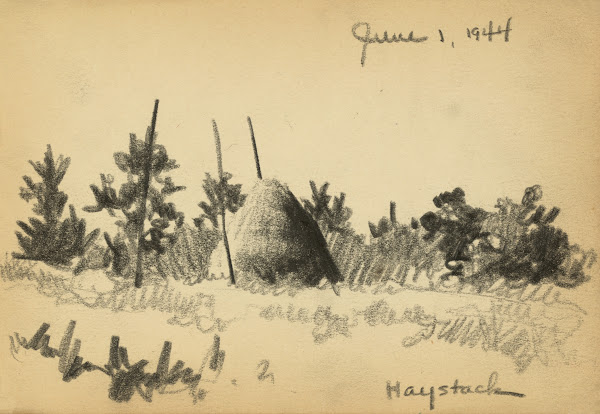 June 1, 1944
2
Haystack